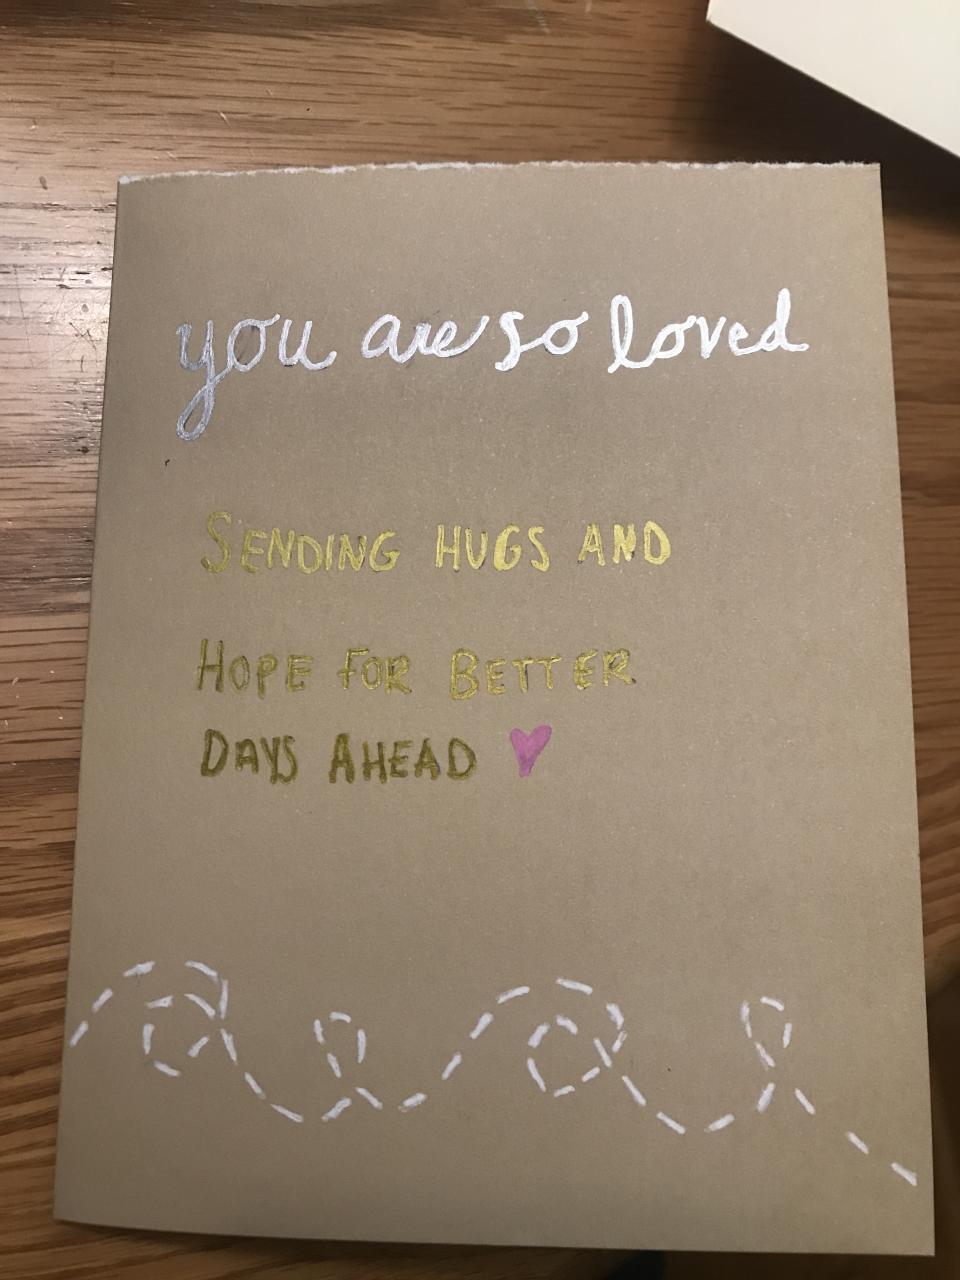 you are so loved
SENDING HUGS AND
HOPE FOR BETTER
DAYS AHEAD